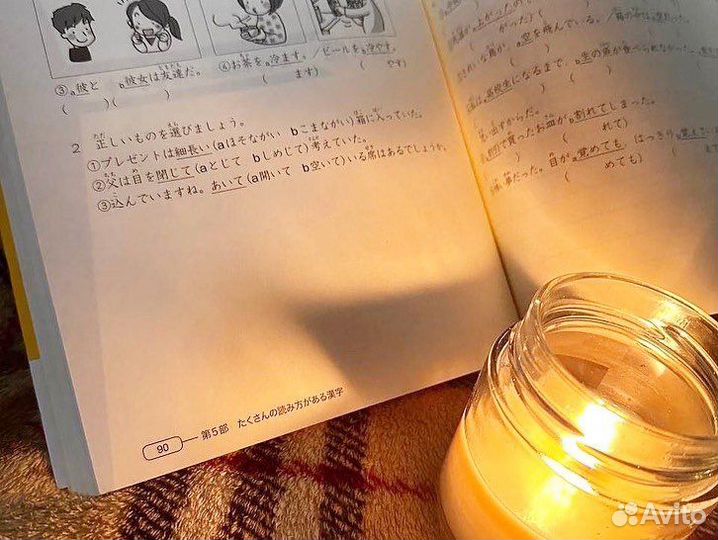 ③a彼と b彼女は友達だ。 ④お茶をa冷ます。/ビールをb冷やす。
( )( ) ( ます) ( やす)
2 正しいものを選びましょう。
①プレゼントは細長い(aほそながい bこまながい)箱に入っていた。
②父は目を閉じて(aとじて bしめじて)考えていた。
③込んでいますね。あいて(a開いて b空いて)いる席はあるでしょうか。
90 第5部 たくさんの読み方がある漢字
上がった
( がった)(
空を飛んでいる。
高校生になるまで、b生の魚が食べられなかった。
買ったお皿がa割れてしまった。
( れて)
夢だった。目がa覚めても、はっきり
( めても)
Avito